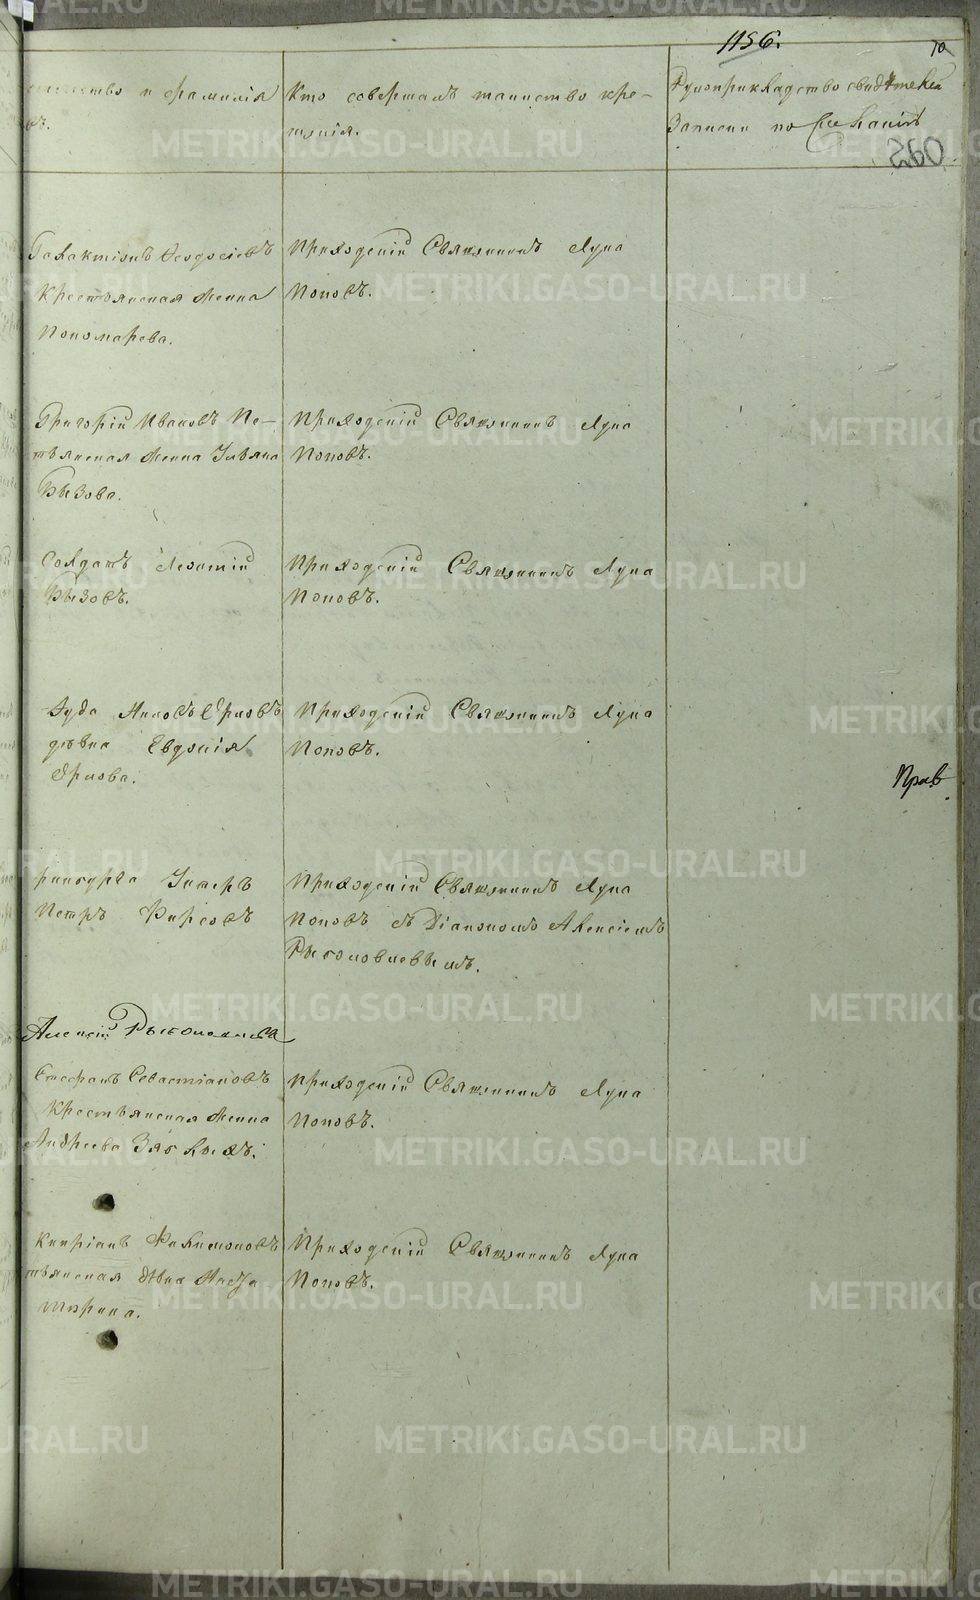 1156.
70
260
отчество и фамилія
Кто совершалъ таинство кре-
щенія.
Рукоприкладство свидѣтелей
Записи по желанію
Галактіонъ Ѳеодосіевъ
Крестьянская женка
Пономарева.
Приходскій Священникъ Лука
Поповъ.
Григорій Ивановъ Пе-
женка Ульяна
Бызова.
Приходскій Священникъ Лука
Поповъ.
Солдатъ Леонтій
Бызовъ.
Приходскій Священникъ Лука
Поповъ.
дѣвка Евдокія
Приходскій Священникъ Лука
Поповъ.
Прав
Петръ Фирсовъ
Приходскій Священникъ Лука
Поповъ съ Діакономъ Алексіемъ
Алексій
Стефанъ Севастіановъ
Крестьянская женка
Андреева Зяблыхъ.
Приходскій Священникъ Лука
Поповъ.
Кипріанъ Филимоновъ
дѣвка
Приходскій Священникъ Лука
Поповъ.
METRIKI.GASO-URAL.RU